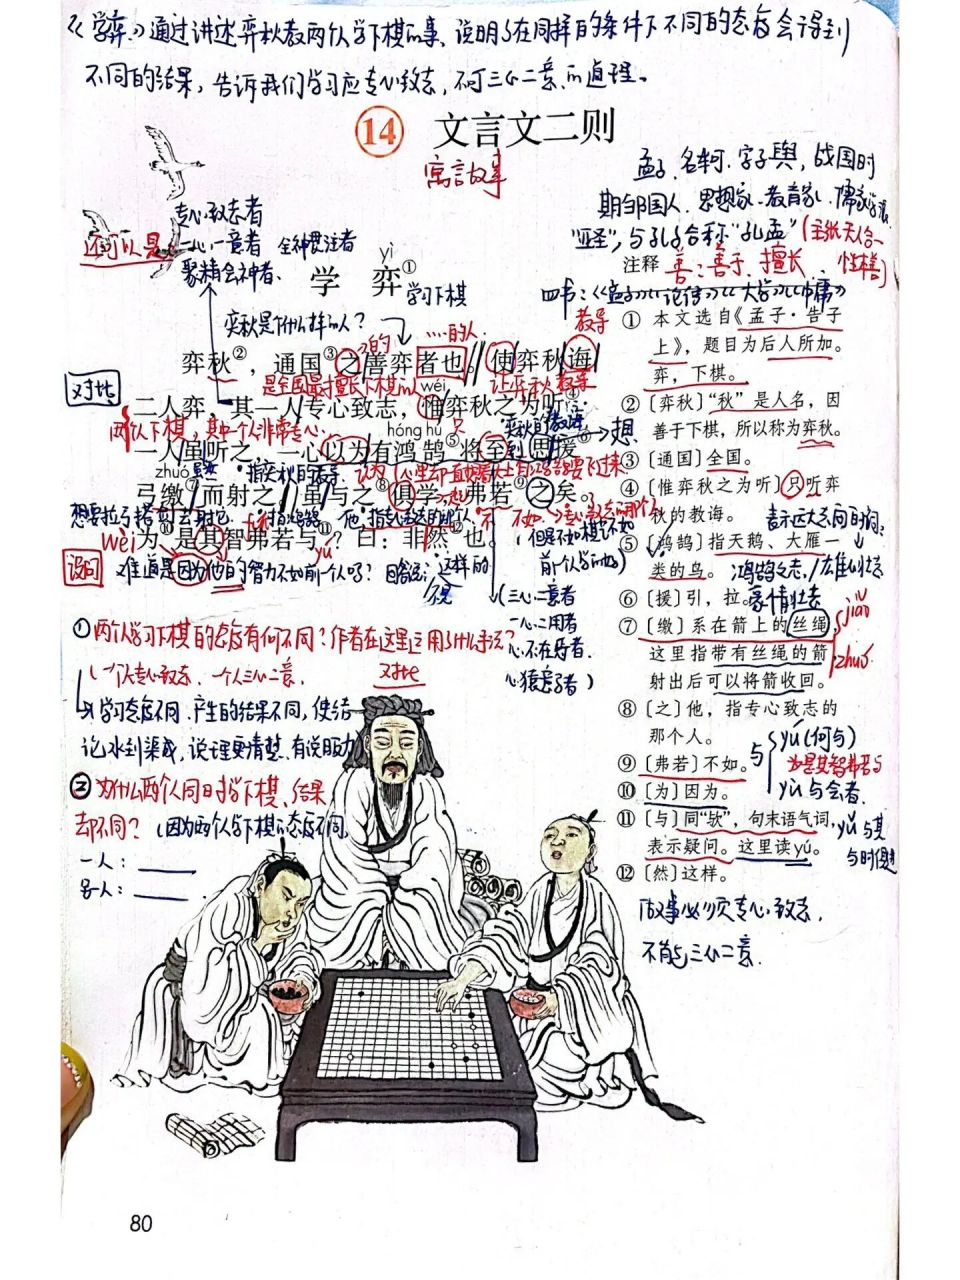 《学弈》通过讲述弈秋教两个人学下棋的事、说明了在同样的条件下不同的态度会得到
不同的结果，告诉我们学习应专心致志，不可三心二意的道理。
14 文言文二则
寓言故事
孟子、名轲、字子舆，战国时
期邹国人、思想家、教育家、儒家
"亚圣"，与孔子合称"孔孟"
注释 善：善于、擅长
四书：《孟子》《论语》《大学》《中庸》
专心致志者
还可以是
一心一意者 全神贯注者
聚精会神者、
yì
学 弈①
学习下棋
弈秋是个什么样的人？
…的人
教导
弈秋②，通国③之善弈者也。使弈秋诲
是全国最擅长下棋的人 让弈秋教导
对比
wéi
二人弈，其一人专心致志，惟弈秋之为听④；
两个人下棋，其中一个人非常专心、
hóng hú
一人虽听之，一心以为有鸿鹄⑤将至，思援⑥
想
zhuó
弓缴⑦而射之，虽与之⑧俱学，弗若⑨之矣。
wèi
为⑩是其智弗若与⑪？曰：非然⑫也。
yú
设问
难道是因为他的智力不如前一个人吗？回答说： 这样的
(三心二意者
一心二用者
心不在焉者、
心猿意马者)
①两个人学习下棋的态度有何不同？作者在这里运用了什么手法？
一个人专心致志、一个人三心二意、 对比
学习态度不同、产生的结果不同，使结
论水到渠成，说理更清楚、有说服力
②为什么两个人同时学下棋、结果
却不同？（因为两个人学下棋的态度不同、
一人：
另一人：
① 本文选自《孟子·告子
上》，题目为后人所加。
弈，下棋。
②〔弈秋〕“秋”是人名，因
善于下棋，所以称为弈秋。
③〔通国〕全国。
④〔惟弈秋之为听〕只听弈
秋的教诲。
⑤〔鸿鹄〕指天鹅、大雁一
类的鸟。
鸿鹄之志
⑥〔援〕引，拉。
⑦〔缴〕系在箭上的丝绳，
jiǎo
这里指带有丝绳的箭，
zhuó
射出后可以将箭收回。
⑧〔之〕他，指专心致志的
那个人。
⑨〔弗若〕不如。
与
yú(何与)
为是其智弗若与
yù 与会者
⑩〔为〕因为。
⑪〔与〕同“欤”，句末语气词，
表示疑问。这里读yú。
yǔ 与其
与时俱进
⑫〔然〕这样。
做事必须专心致志，
不能三心二意、
80